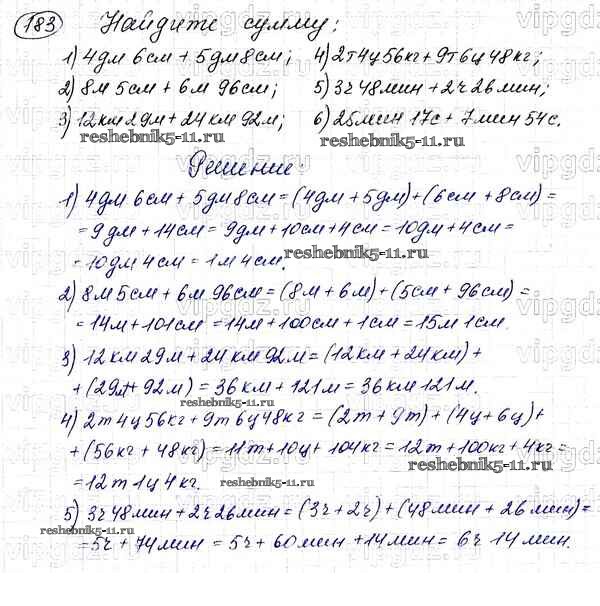 183 Найдите сумму:
1) 4дм 6см + 5дм 8см; 4) 2т 4ц 56кг + 9т 6ц 48кг;
2) 8м 5см + 6м 96см; 5) 3ч 48мин + 2ч 26мин;
3) 12км 29м + 24км 92м; 6) 25мин 17с + 7мин 54с.
reshebnik5-11.ru reshebnik5-11.ru
Решение
1) 4дм 6см + 5дм 8см = (4дм + 5дм) + (6см + 8см) =
= 9дм + 14см = 9дм + 10см + 4см = 10дм + 4см =
reshebnik5-11.ru
= 10дм 4см = 1м 4см.
2) 8м 5см + 6м 96см = (8м + 6м) + (5см + 96см) =
= 14м + 101см = 14м + 100см + 1см = 15м 1см.
3) 12км 29м + 24км 92м = (12км + 24км) +
+ (29м + 92м) = 36км + 121м = 36км 121м.
reshebnik5-11.ru
4) 2т 4ц 56кг + 9т 6ц 48кг = (2т + 9т) + (4ц + 6ц) +
+ (56кг + 48кг) = 11т + 10ц + 104кг = 12т + 100кг + 4кг =
reshebnik5-11.ru
= 12т 1ц 4кг.
reshebnik5-11.ru
5) 3ч 48мин + 2ч 26мин = (3ч + 2ч) + (48мин + 26мин) =
reshebnik5-11.ru
= 5ч + 74мин = 5ч + 60мин + 14мин = 6ч 14мин.